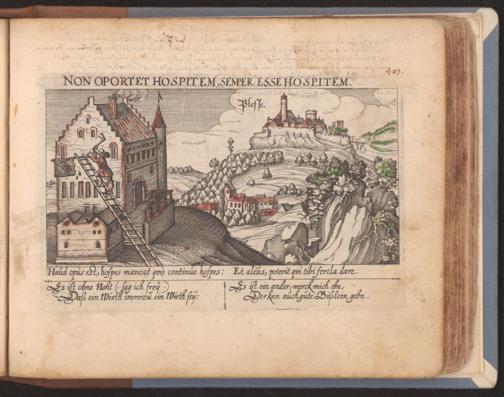 NON OPORTET HOSPITEM, SEMPER ESSE HOSPITEM.
Plesse.
Haud opus est, hospes maneat qvo continue hospes: Et alius, poterit qvi tibi fercla dare.
Es ist ohne Noht (sag ich frey)
Daß ein Wirth immrzu ein Wirth sey:
Es ist ein ander, merck mich ebn,
Der kan auch gute Bißlein gebn.